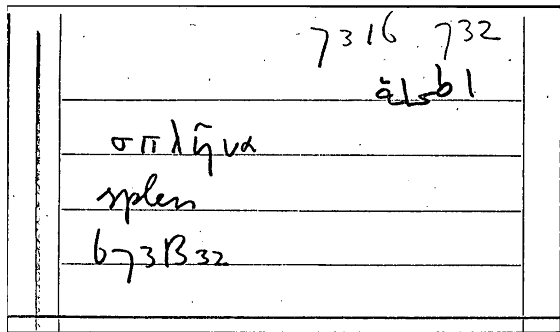 7316 732
σπλῆνα
splen
673B32